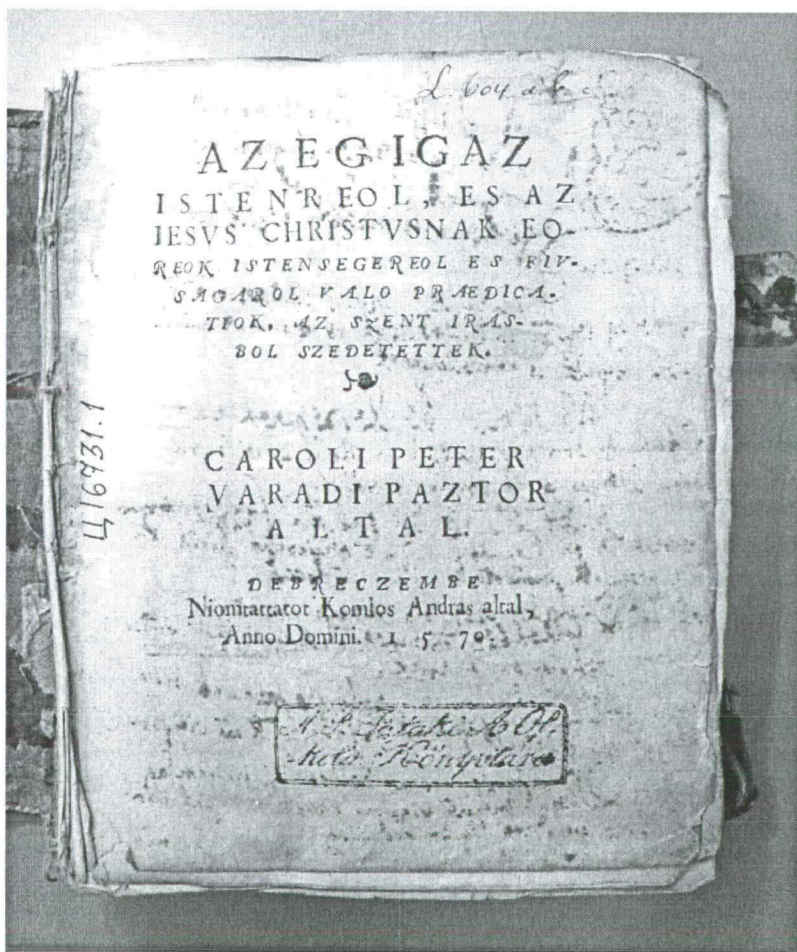 L. 604 a. b. c.
AZ EG IGAZ
ISTENREOL, ES AZ
IESVS CHRISTVSNAK EO-
REOK ISTENSEGEREOL ES FIV-
SAGAROL VALO PRÆDICA-
TIOK, AZ SZENT IRAS-
BOL SZEDETETTEK.
CAROLI PETER
VARADI PAZTOR
ALTAL.
DEBRECZEMBE
Niomtattatot Komlos Andras altal,
Anno Domini. 1 5 70.
Könyvtára
Ц16731.1